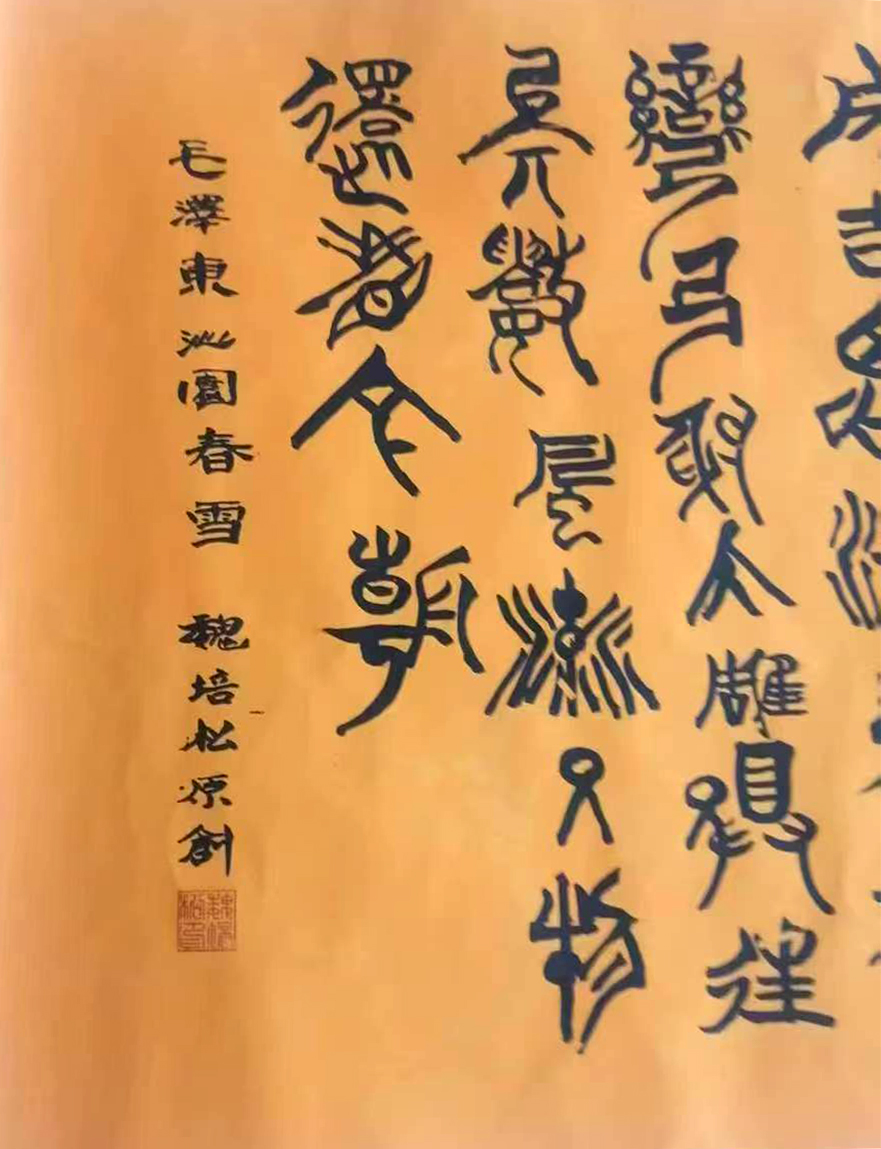 成吉思汗
彎弓射大雕俱往
矣數風流人物
還看今朝
毛澤東沁園春雪 魏培松原創